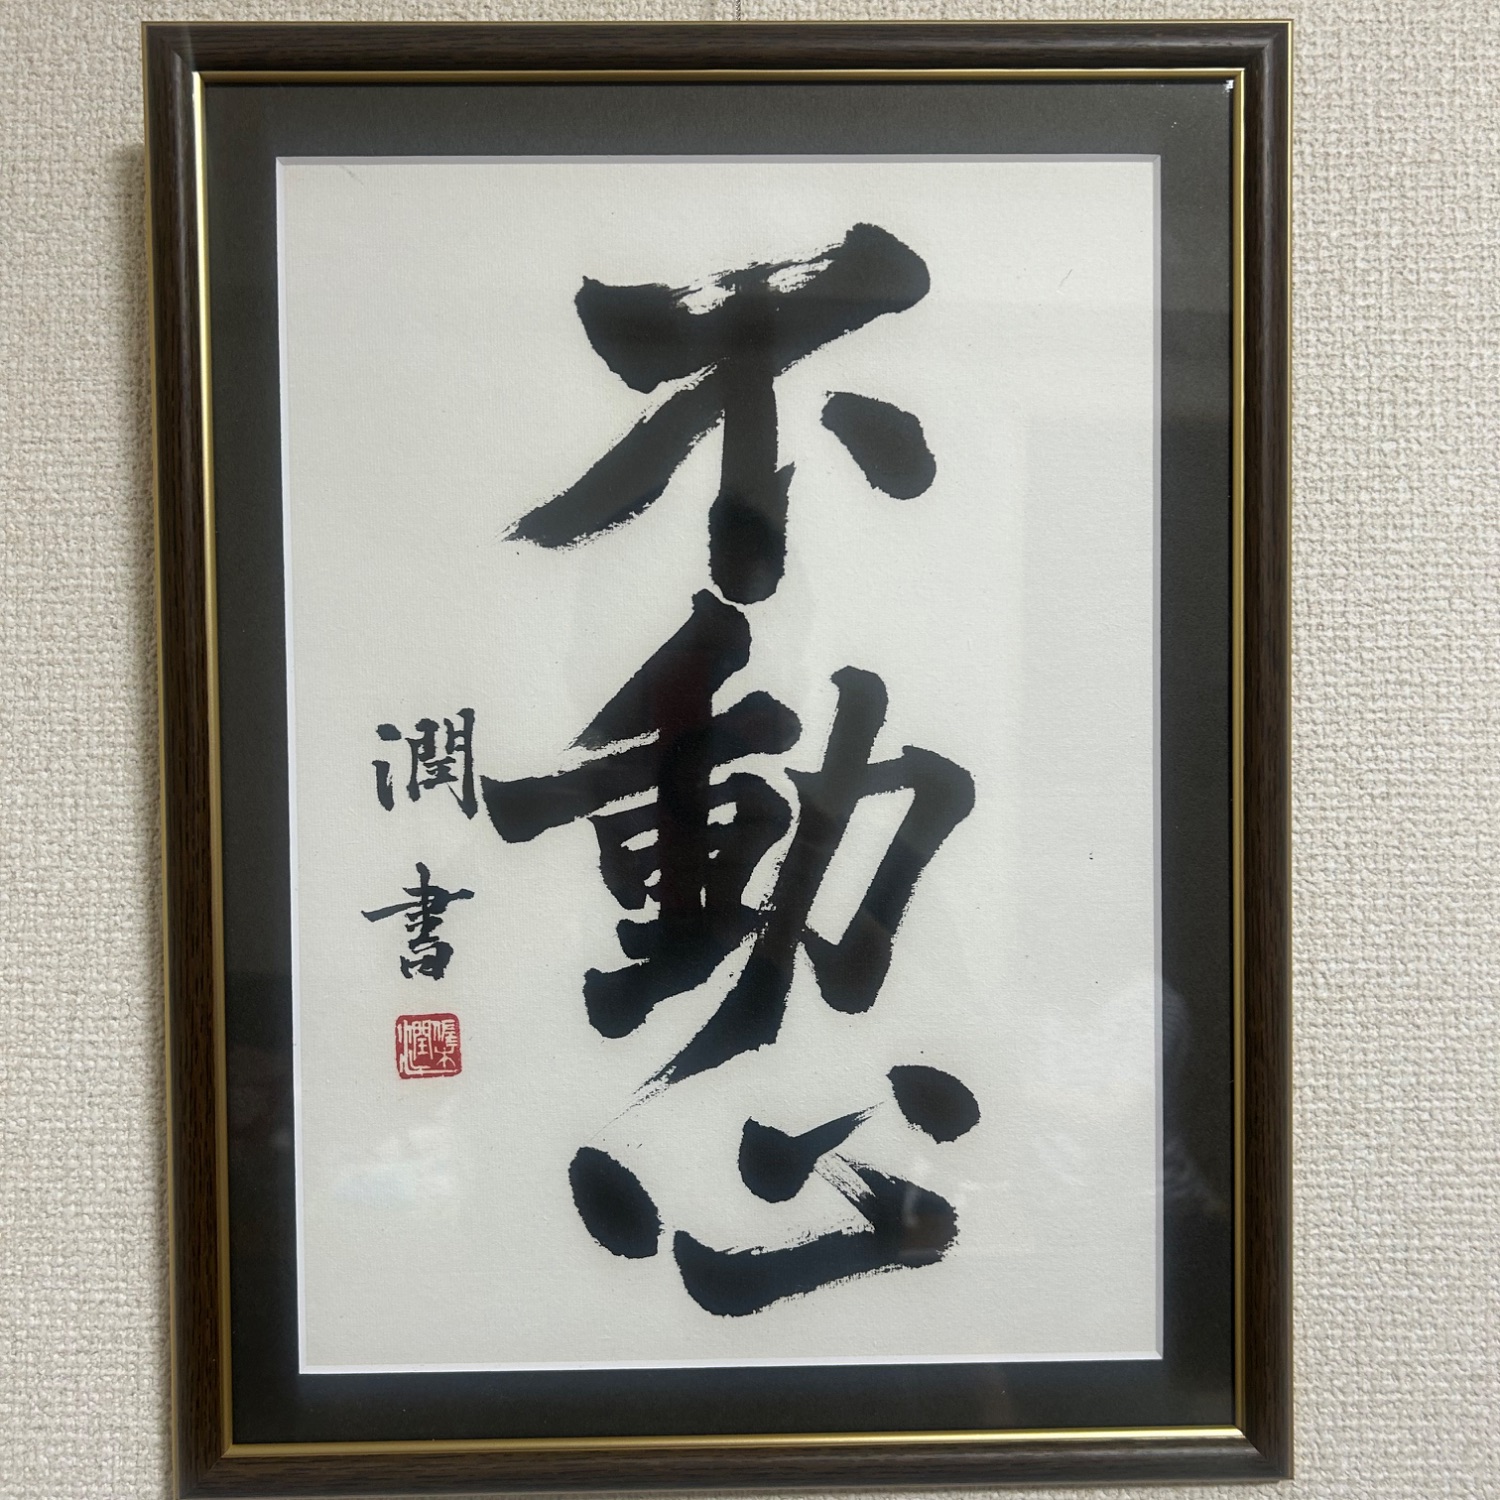 不動心
潤書